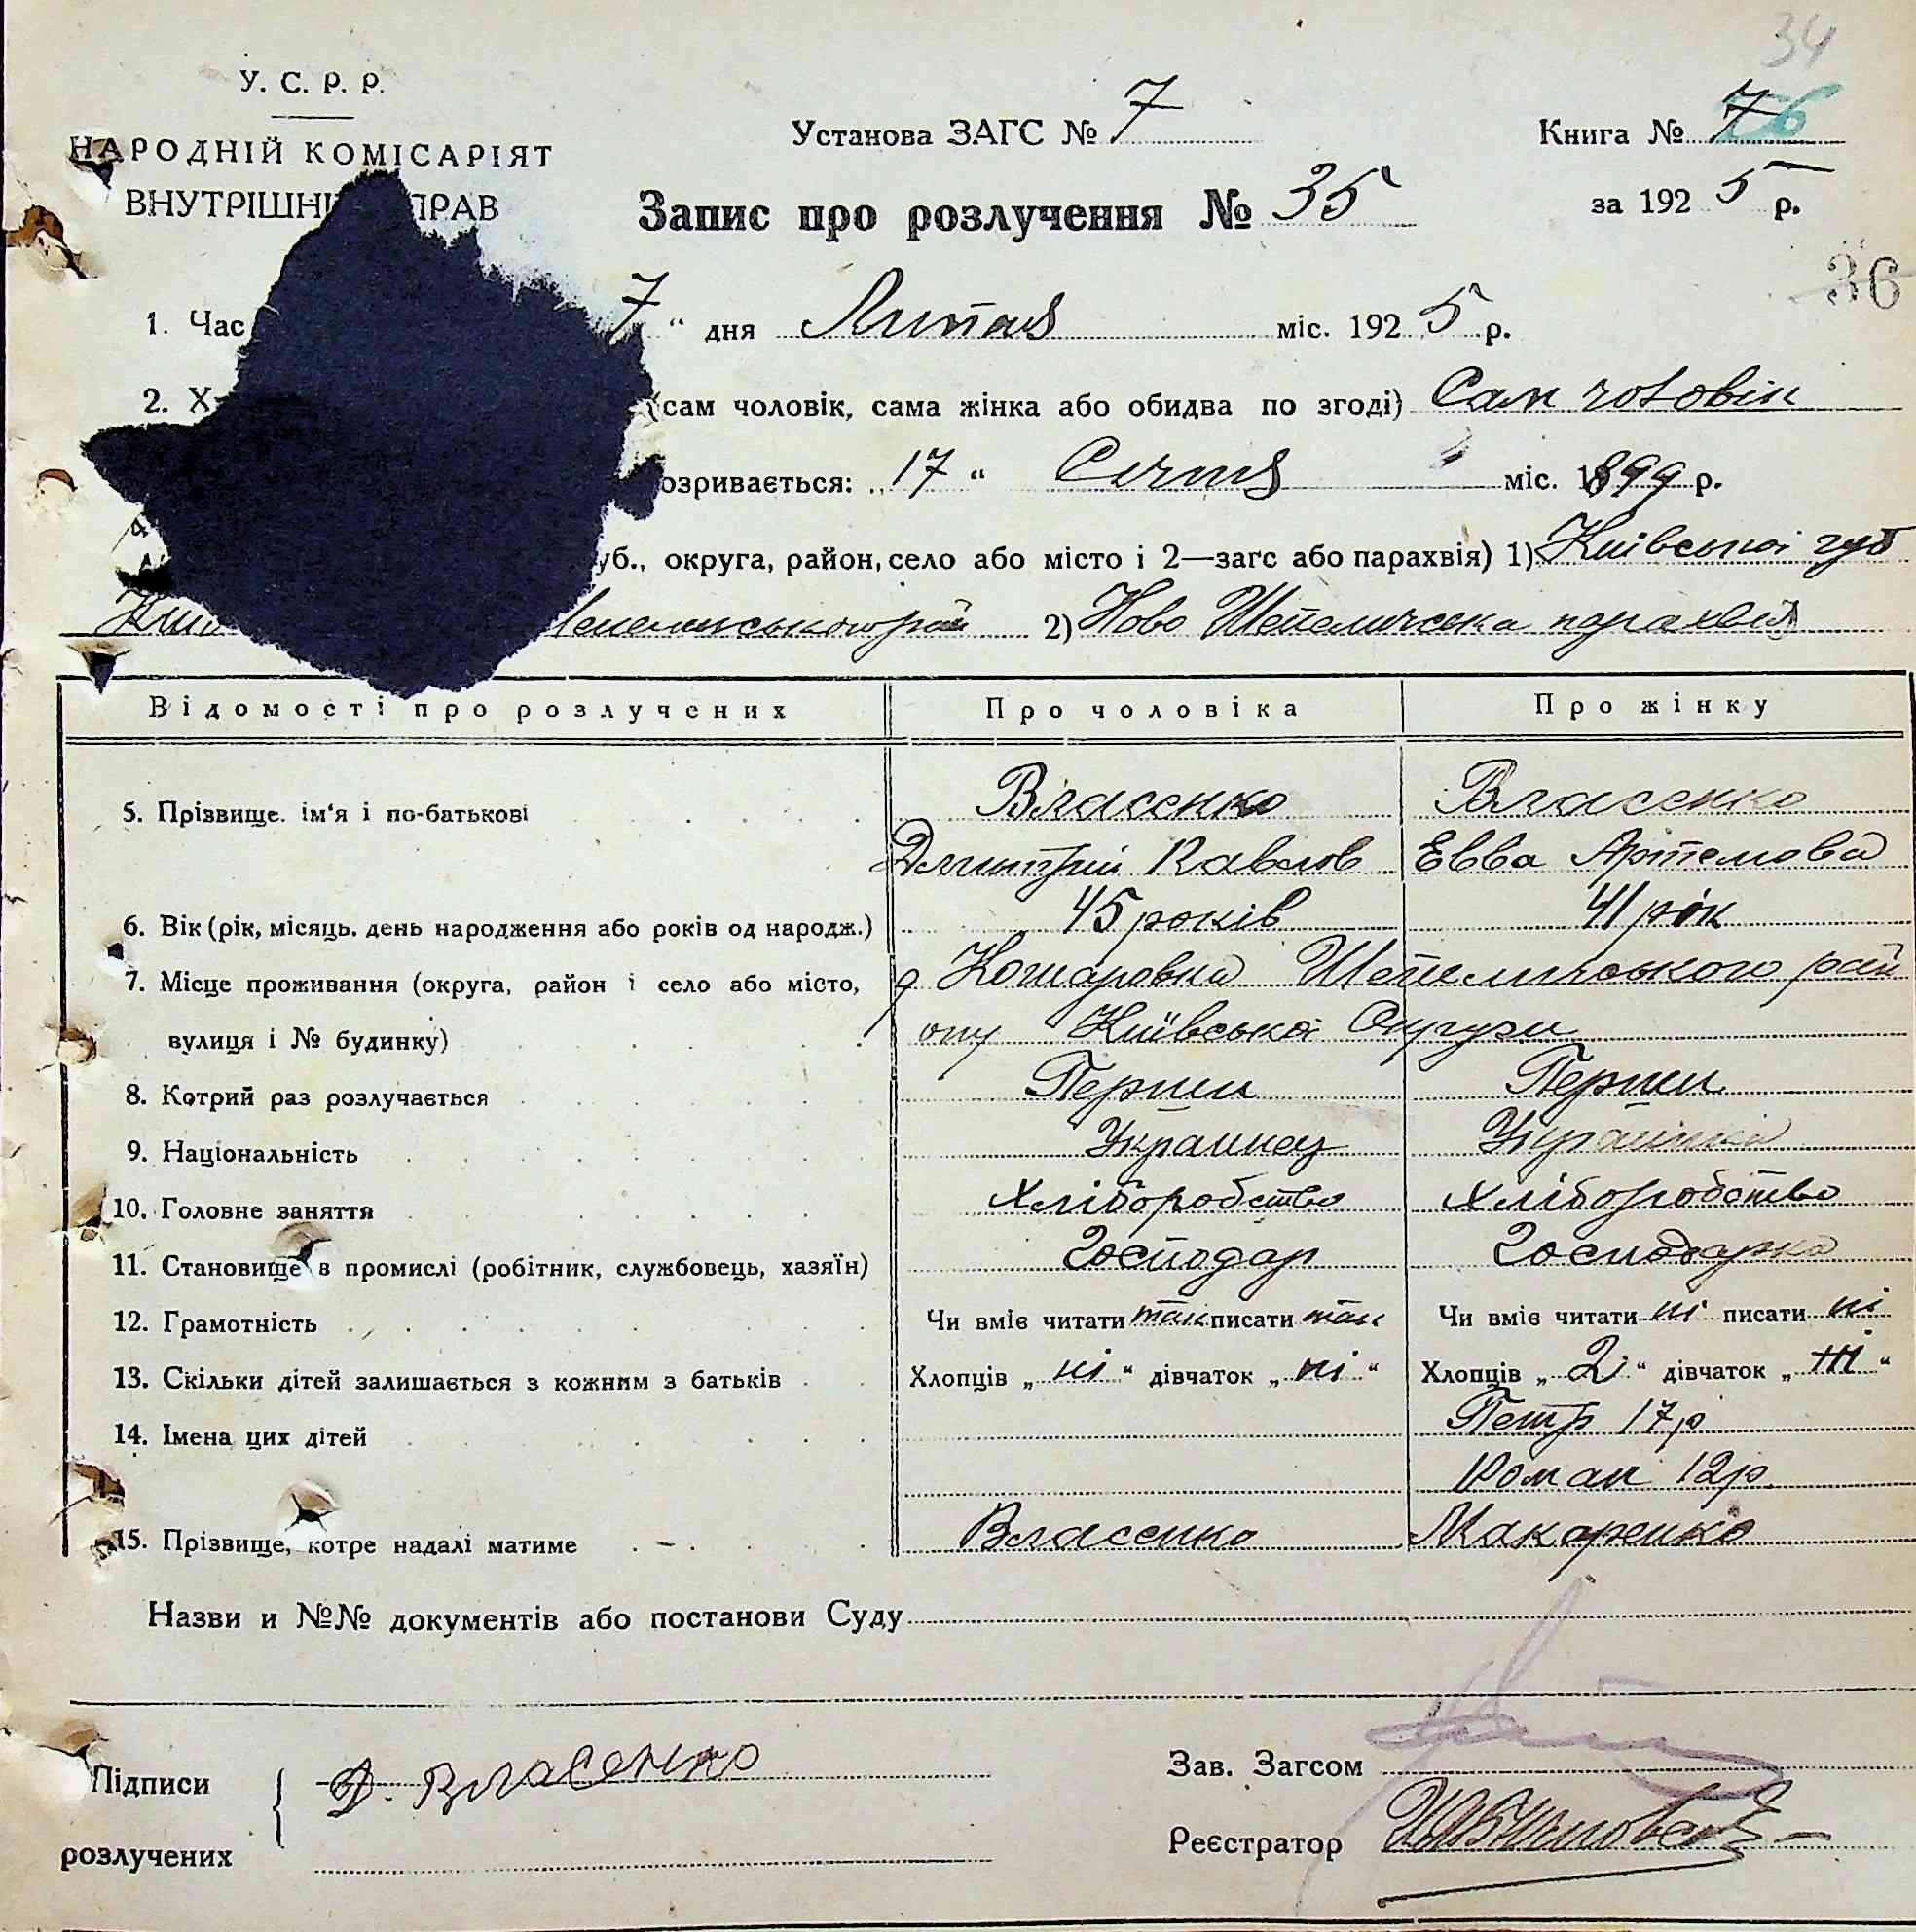 34
У. С. Р. Р.
НАРОДНІЙ КОМІСАРІЯТ
ВНУТРІШНІ ПРАВ
Установа ЗАГС № 7
Книга № 7
Запис про розлучення № 35
за 1925 р.
36
1. Час 7 “ дня Липня міс. 1925 р.
2. Х (сам чоловік, сама жінка або обидва по згоді) Сам чоловік
озривається: „17 “ Січня міс. 1899 р.
4
уб., округа, район, село або місто і 2—загс або парахвія) 1) Київської губ
2) Ново Шепелическа парахвія
Відомості про розлучених Про чоловіка Про жінку
5. Прізвище. ім'я і по-батькові Власенко Власенко
Дмитрій Павлов Евва Артемова
6. Вік (рік, місяць. день народження або років од народж.) 45 років 41 рік
7. Місце проживання (округа, район і село або місто, д Кошаровка Шепелического рай
вулиця і № будинку) ону Київської Округи
8. Котрий раз розлучається Перший Перший
9. Національність Украинец Українка
10. Головне заняття Хліборобство Хліборобство
11. Становище в промислі (робітник, службовець, хазяїн) Господар Господарка
12. Грамотність Чи вміє читати так писати так Чи вміє читати ні писати ні
13. Скільки дітей залишається з кожним з батьків Хлопців „ ні “ дівчаток „ ні “ Хлопців „ 2 “ дівчаток „ ні “
14. Імена цих дітей Петр 17р
Роман 12р
15. Прізвище, котре надалі матиме Власенко Макаренко
Назви и №№ документів або постанови Суду
Підписи
розлучених
Д. Власенко
Зав. Загсом
Реєстратор